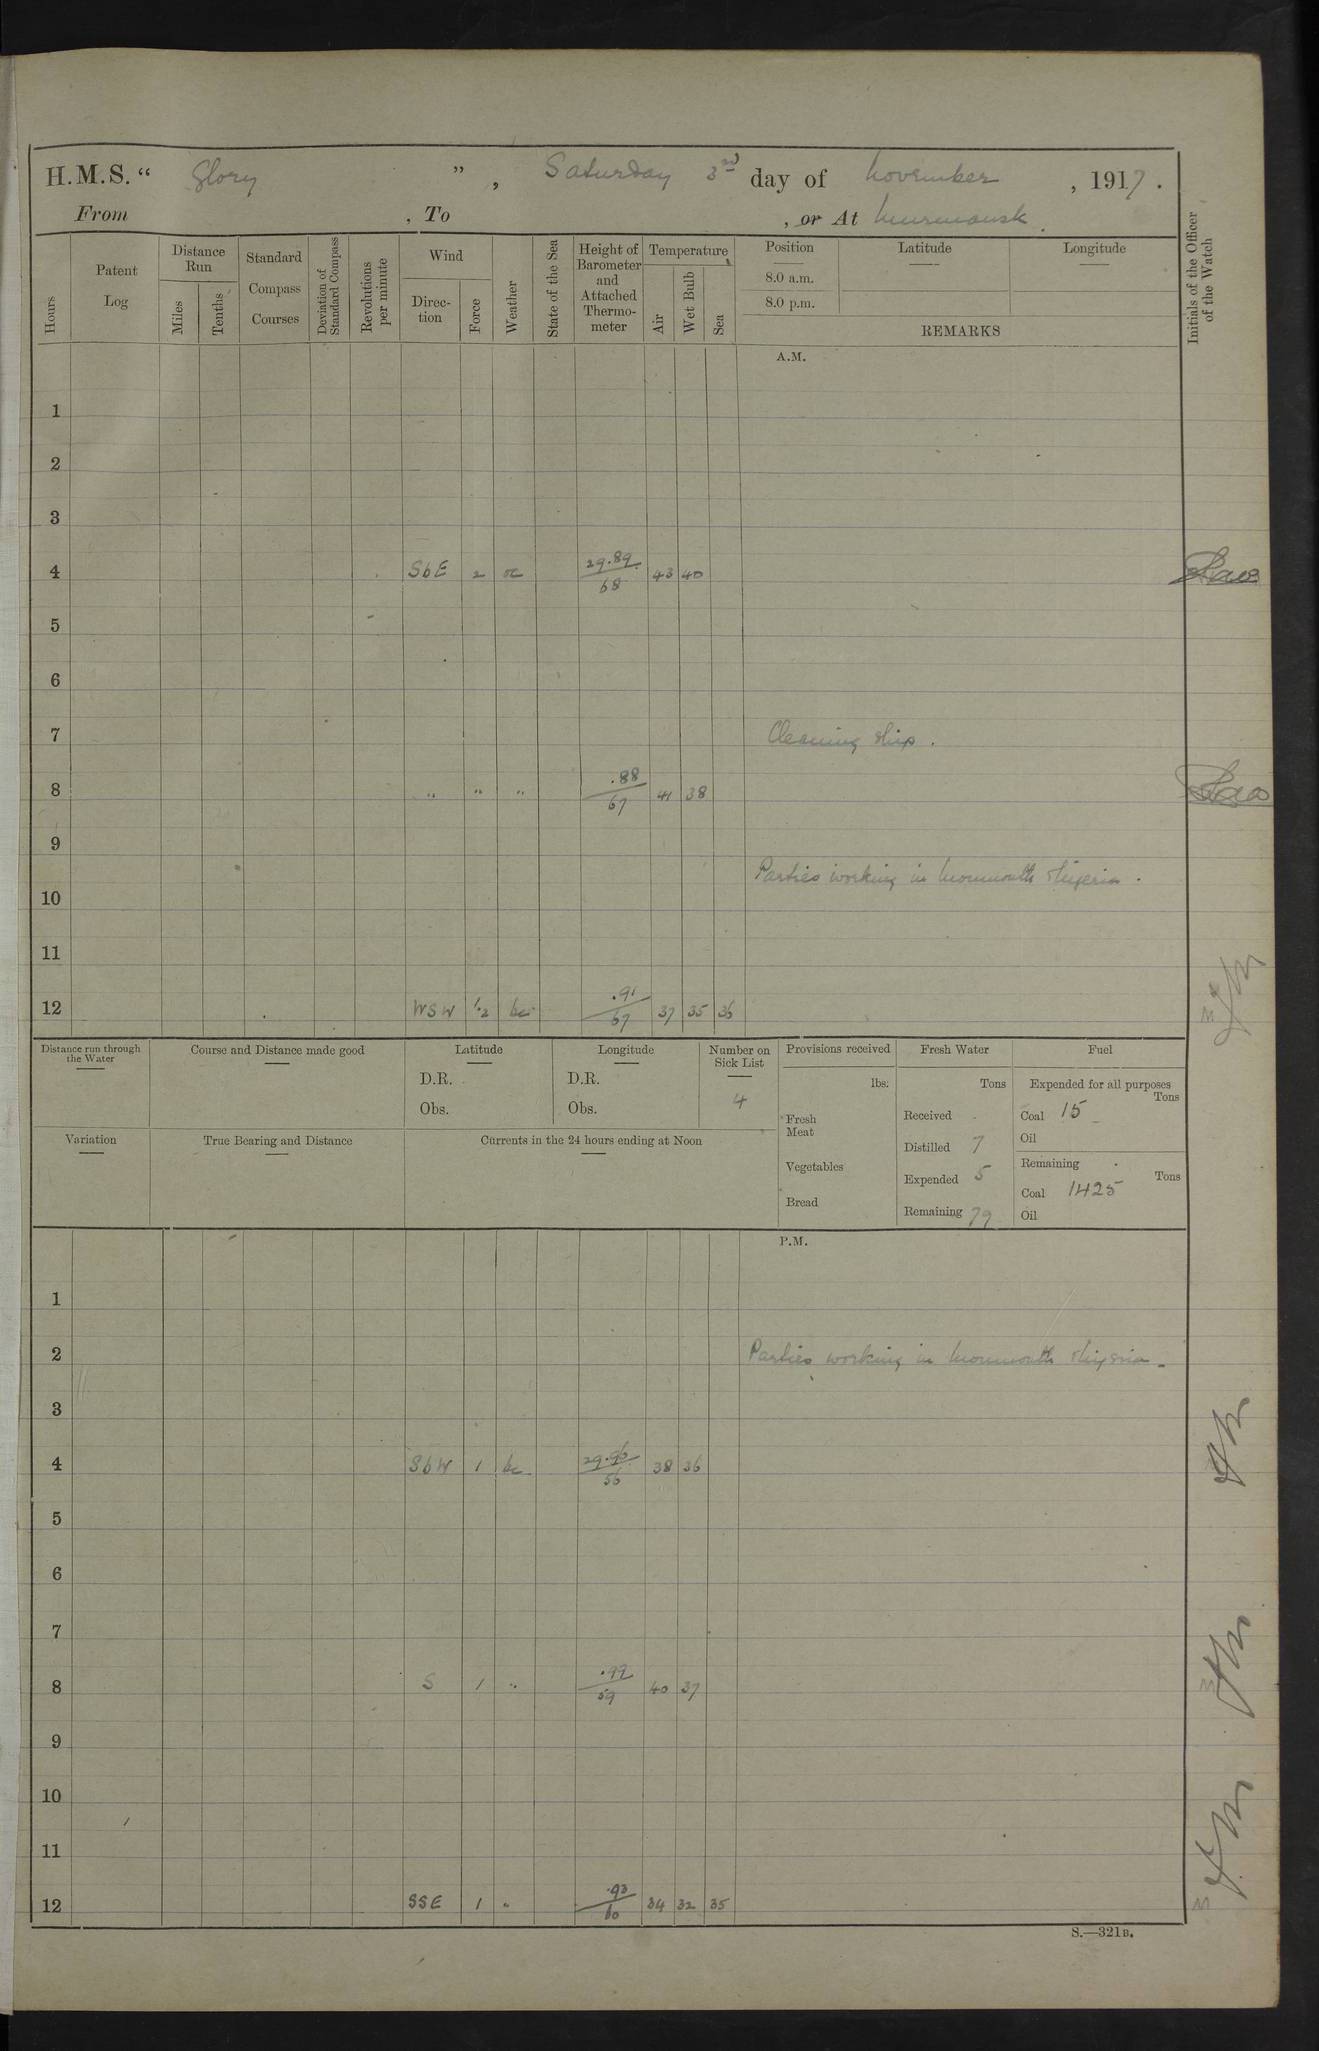 H.M.S. “ Glory ” , Saturday 3rd day of November , 1917 .
From , To , or At Murmansk .
Hours
Patent Log
Distance Run
Miles
Tenths
Standard Compass Courses
Deviation of Standard Compass
Revolutions per minute
Wind
Direc-tion
Force
Weather
State of the Sea
Height of Barometer and Attached Thermo-meter
Temperature
Air
Wet Bulb
Sea
Position
8.0 a.m.
8.0 p.m.
Latitude
Longitude
REMARKS
Initials of the Officer of the Watch
A.M.
1
2
3
4 SbE 2 oc 29.89 68 43 40
5
6
7 Cleaning ship .
8 " " " .88 67 41 38
9
Parties working in Monmouth & Nigeria .
10
11
12 WSW 1.2 bc .91 67 37 35 36
Distance run through the Water
Course and Distance made good
Latitude
D.R.
Obs.
Longitude
D.R.
Obs.
Number on Sick List
4
Provisions received
lbs.
Fresh Meat
Vegetables
Bread
Fresh Water
Tons
Received
Distilled 7
Expended 5
Remaining 79
Fuel
Expended for all purposes
Tons
Coal 15
Oil
Remaining
Tons
Coal 1425
Oil
Variation
True Bearing and Distance
Currents in the 24 hours ending at Noon
P.M.
1
2 Parties working in Monmouth & Nigeria .
3
4 SbW 1 bc 29.96 56 38 36
5
6
7
8 S 1 " .99 59 40 37
9
10
11
12 SSE 1 " .93 60 34 32 35
S.—321B.